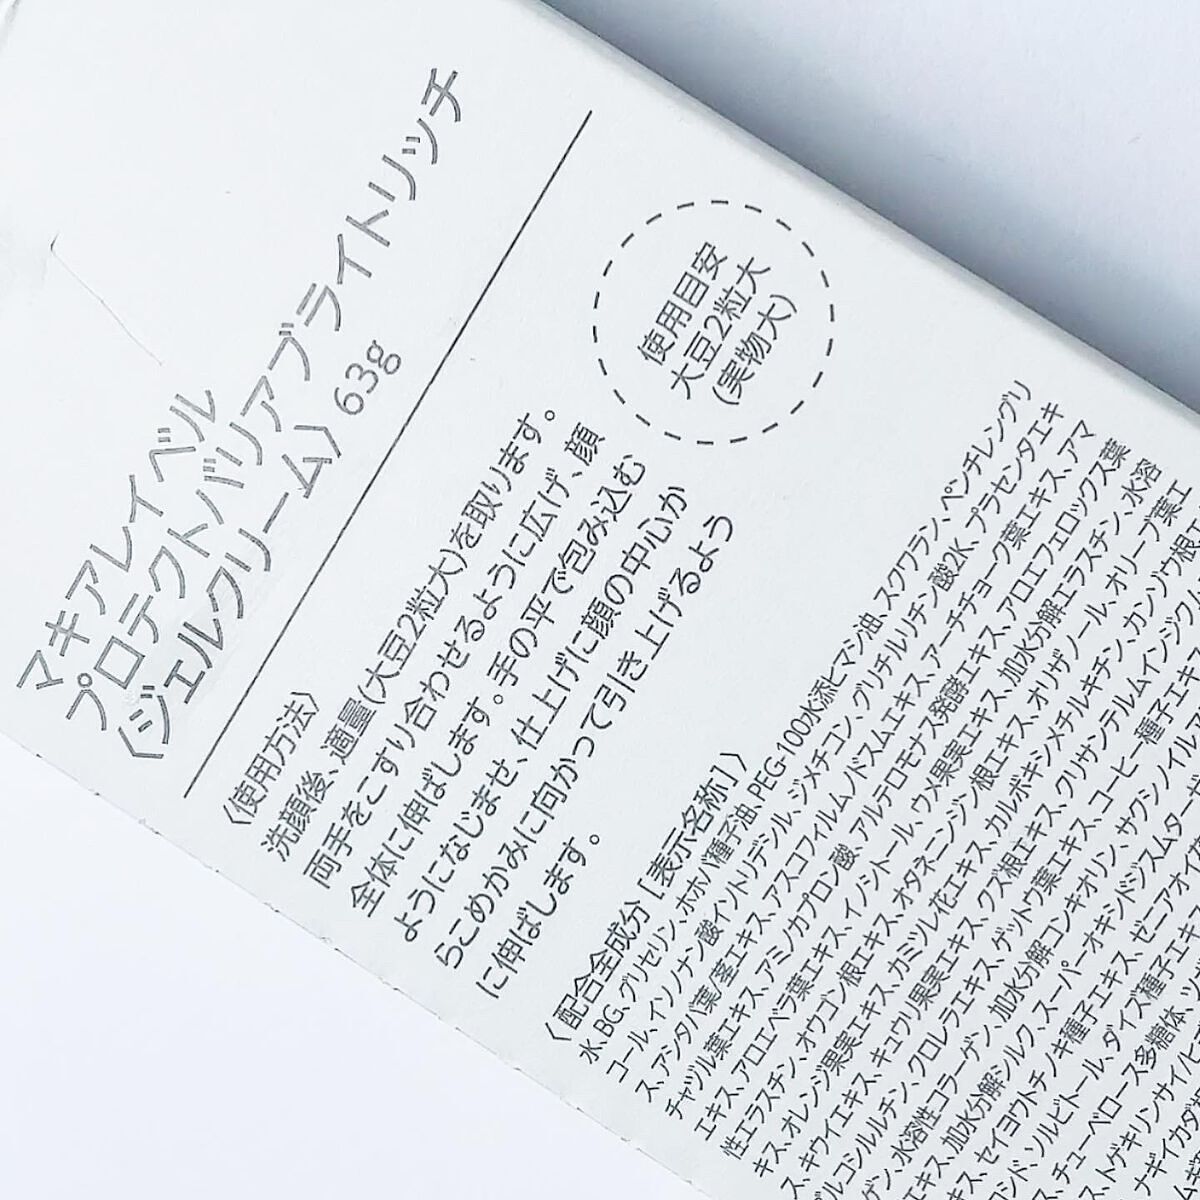 マキアレイベル
プロテクトバリアブライトリッチ
〈ジェルクリーム〉 63g
使用目安
大豆2粒大
(実物大)
〈使用方法〉
洗顔後、適量(大豆2粒大)を取ります。
両手をこすり合わせるように広げ、顔
全体に伸ばします。手の平で包み込む
ようになじませ、仕上げに顔の中心か
らこめかみに向かって引き上げるよう
に伸ばします。
〈配合全成分 [表示名称]〉
水、BG、グリセリン、ホホバ種子油、PEG-100水添ヒマシ油、スクワラン、ペンチレングリ
コール、イソノナン酸イソトリデシル、ジメチコン、グリチルリチン酸2K、プラセンタエキ
ス、アシタバ葉/茎エキス、アスコフィルムノドスムエキス、アーチチョーク葉エキス、アマ
チャヅル葉エキス、アミノカプロン酸、アルテロモナス発酵エキス、アロエフェロックス葉
エキス、アロエベラ葉エキス、イノシトール、ウメ果実エキス、加水分解エラスチン、水溶
性エラスチン、オウゴン根エキス、オタネニンジン根エキス、オリザノール、オリーブ葉エ
キス、オレンジ果実エキス、カミツレ花エキス、カルボキシメチルキチン、カンゾウ根エ
ス、キウイエキス、キュウリ果実エキス、クズ根エキス、クリサンテルムインジクム
グルコシルルチン、クロレラエキス、ゲットウ葉エキス、コーヒー種子エキス
ゲン、水溶性コラーゲン、加水分解コンキオリン、サクシノイルア
エキス、加水分解シルク、スーパーオキシドジスムターゼ
ス、セイヨウトチノキ種子エキス、ゼニアオイ花
シド、ソルビトール、ダイズ種子エキス
ス、チューベロース多糖体、ツ
ス、トゲキリンサイ/ヒ
ナギイカダ根